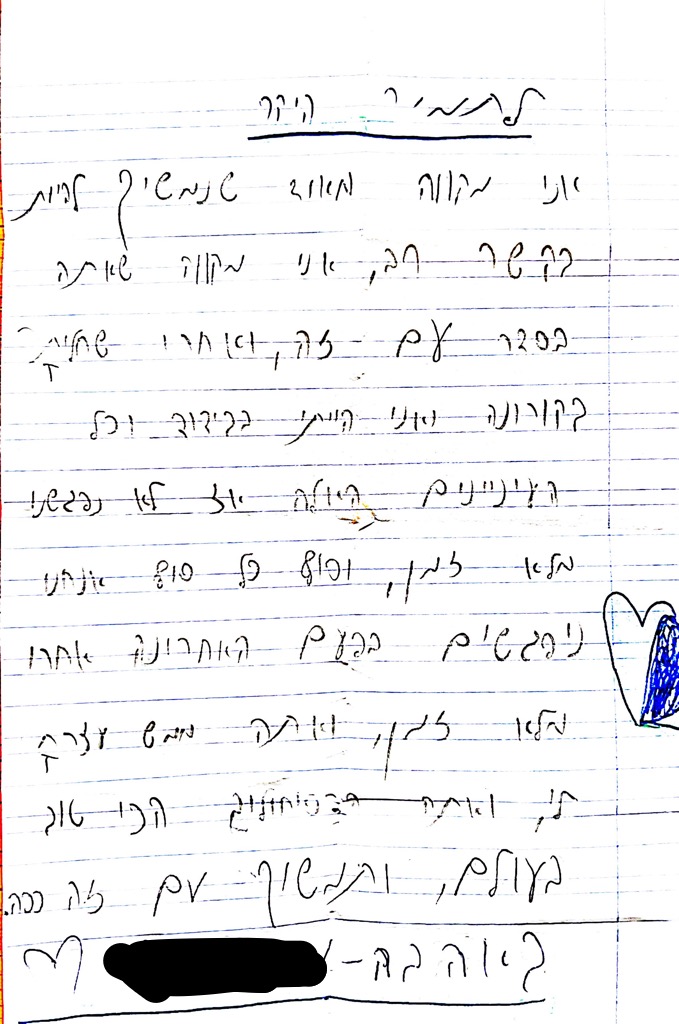 לתמיר היקר
אני מקווה מאוד שנמשיך להיות
בקשר רב, אני מקווה שאתה
בסדר עם זה, ואחרי שחלית
בקורונה ואני הייתי בבידוד וכל
העיניינים האלה אז לא נפגשנו
מלא זמן, וסוף כל סוף אנחנו
ניפגשים בפעם האחרונה אחרי
מלא זמן, ואתה ממש עזרת
לי, ואתה הפסיכולוג הכי טוב
בעולם, ותמשיך עם זה ככה.
באהבה-